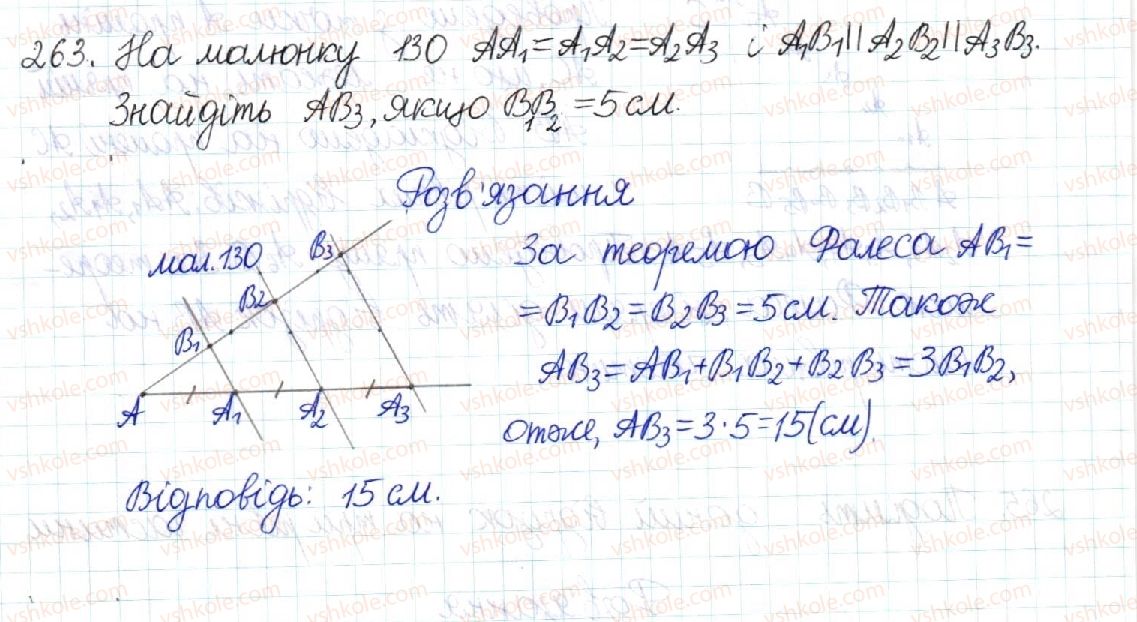 263. На малюнку 130 AA₁ = A₁A₂ = A₂A₃ і A₁B₁ || A₂B₂ || A₃B₃.
Знайдіть AB₃, якщо B₁B₂ = 5 см.
Розв'язання
мал. 130
B₃
B₂
B₁
A A₁ A₂ A₃
За теоремою Фалеса AB₁ =
= B₁B₂ = B₂B₃ = 5 см. Також
AB₃ = AB₁ + B₁B₂ + B₂B₃ = 3B₁B₂,
отже, AB₃ = 3·5 = 15 (см).
Відповідь: 15 см.